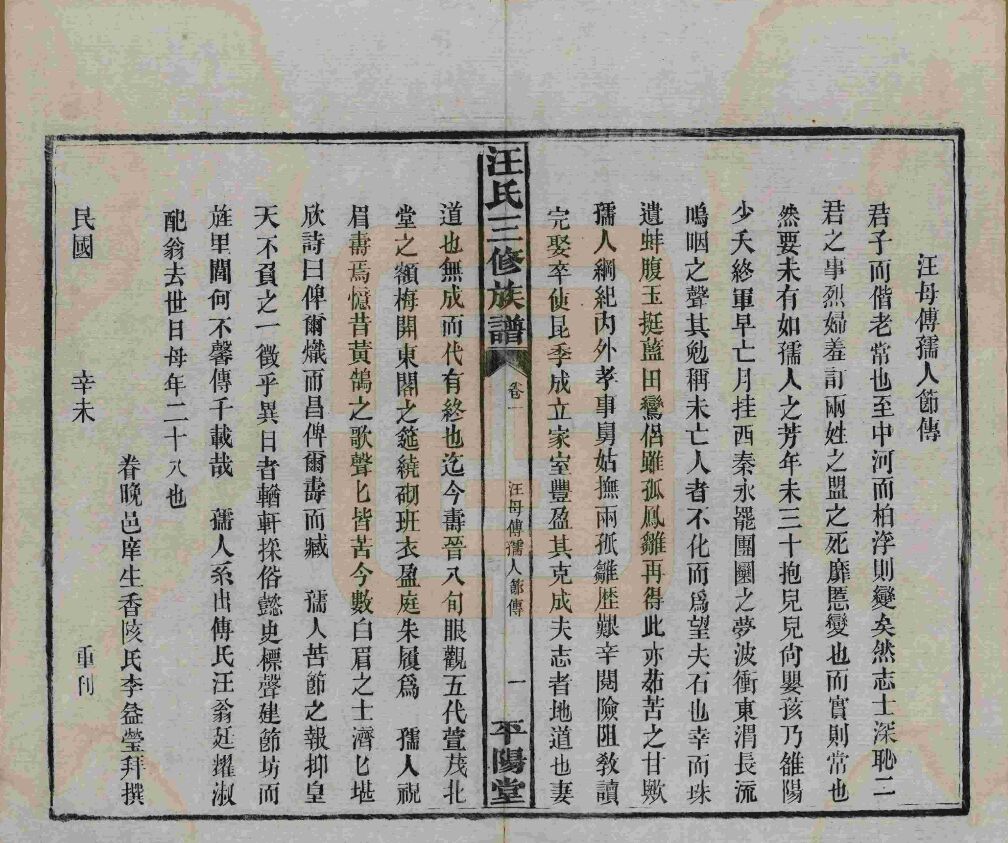 汪母傅孺人節傳
君子而偕老常也至中河而柏浮則變矣然志士深恥二
君之事烈婦羞訂兩姓之盟之死靡慝變也而實則常也
然要未有如孺人之芳年未三十抱兒兒尙嬰孩乃雒陽
少夭終軍早亡月挂西秦永罷團圞之夢波衝東渭長流
嗚咽之聲其勉稱未亡人者不化而爲望夫石也幸而珠
遺蚌腹玉挺藍田鸞侶雖孤鳳雛再得此亦茹苦之甘歟
孺人綱紀內外孝事舅姑撫兩孤雛歷艱辛閱險阻敎讀
完娶卒使昆季成立家室豐盈其克成夫志者地道也妻
汪氏三修族譜
卷一
汪母傅孺人節傳
一
平陽堂
道也無成而代有終也迄今壽晉八旬眼觀五代萱茂北
堂之額梅開東閣之筵繞砌班衣盈庭朱履爲 孺人祝
眉壽焉憶昔黃鵠之歌聲匕皆苦今數白眉之士濟匕堪
欣詩曰俾爾熾而昌俾爾壽而臧 孺人苦節之報抑皇
天不負之一徵乎異日者輶軒採俗懿史標聲建節坊而
旌里閭何不馨傳千載哉 孺人系出傅氏汪翁廷耀淑
配翁去世日母年二十八也
眷晚邑庠生香陔氏李益瑩拜撰
民國 辛未 重刊